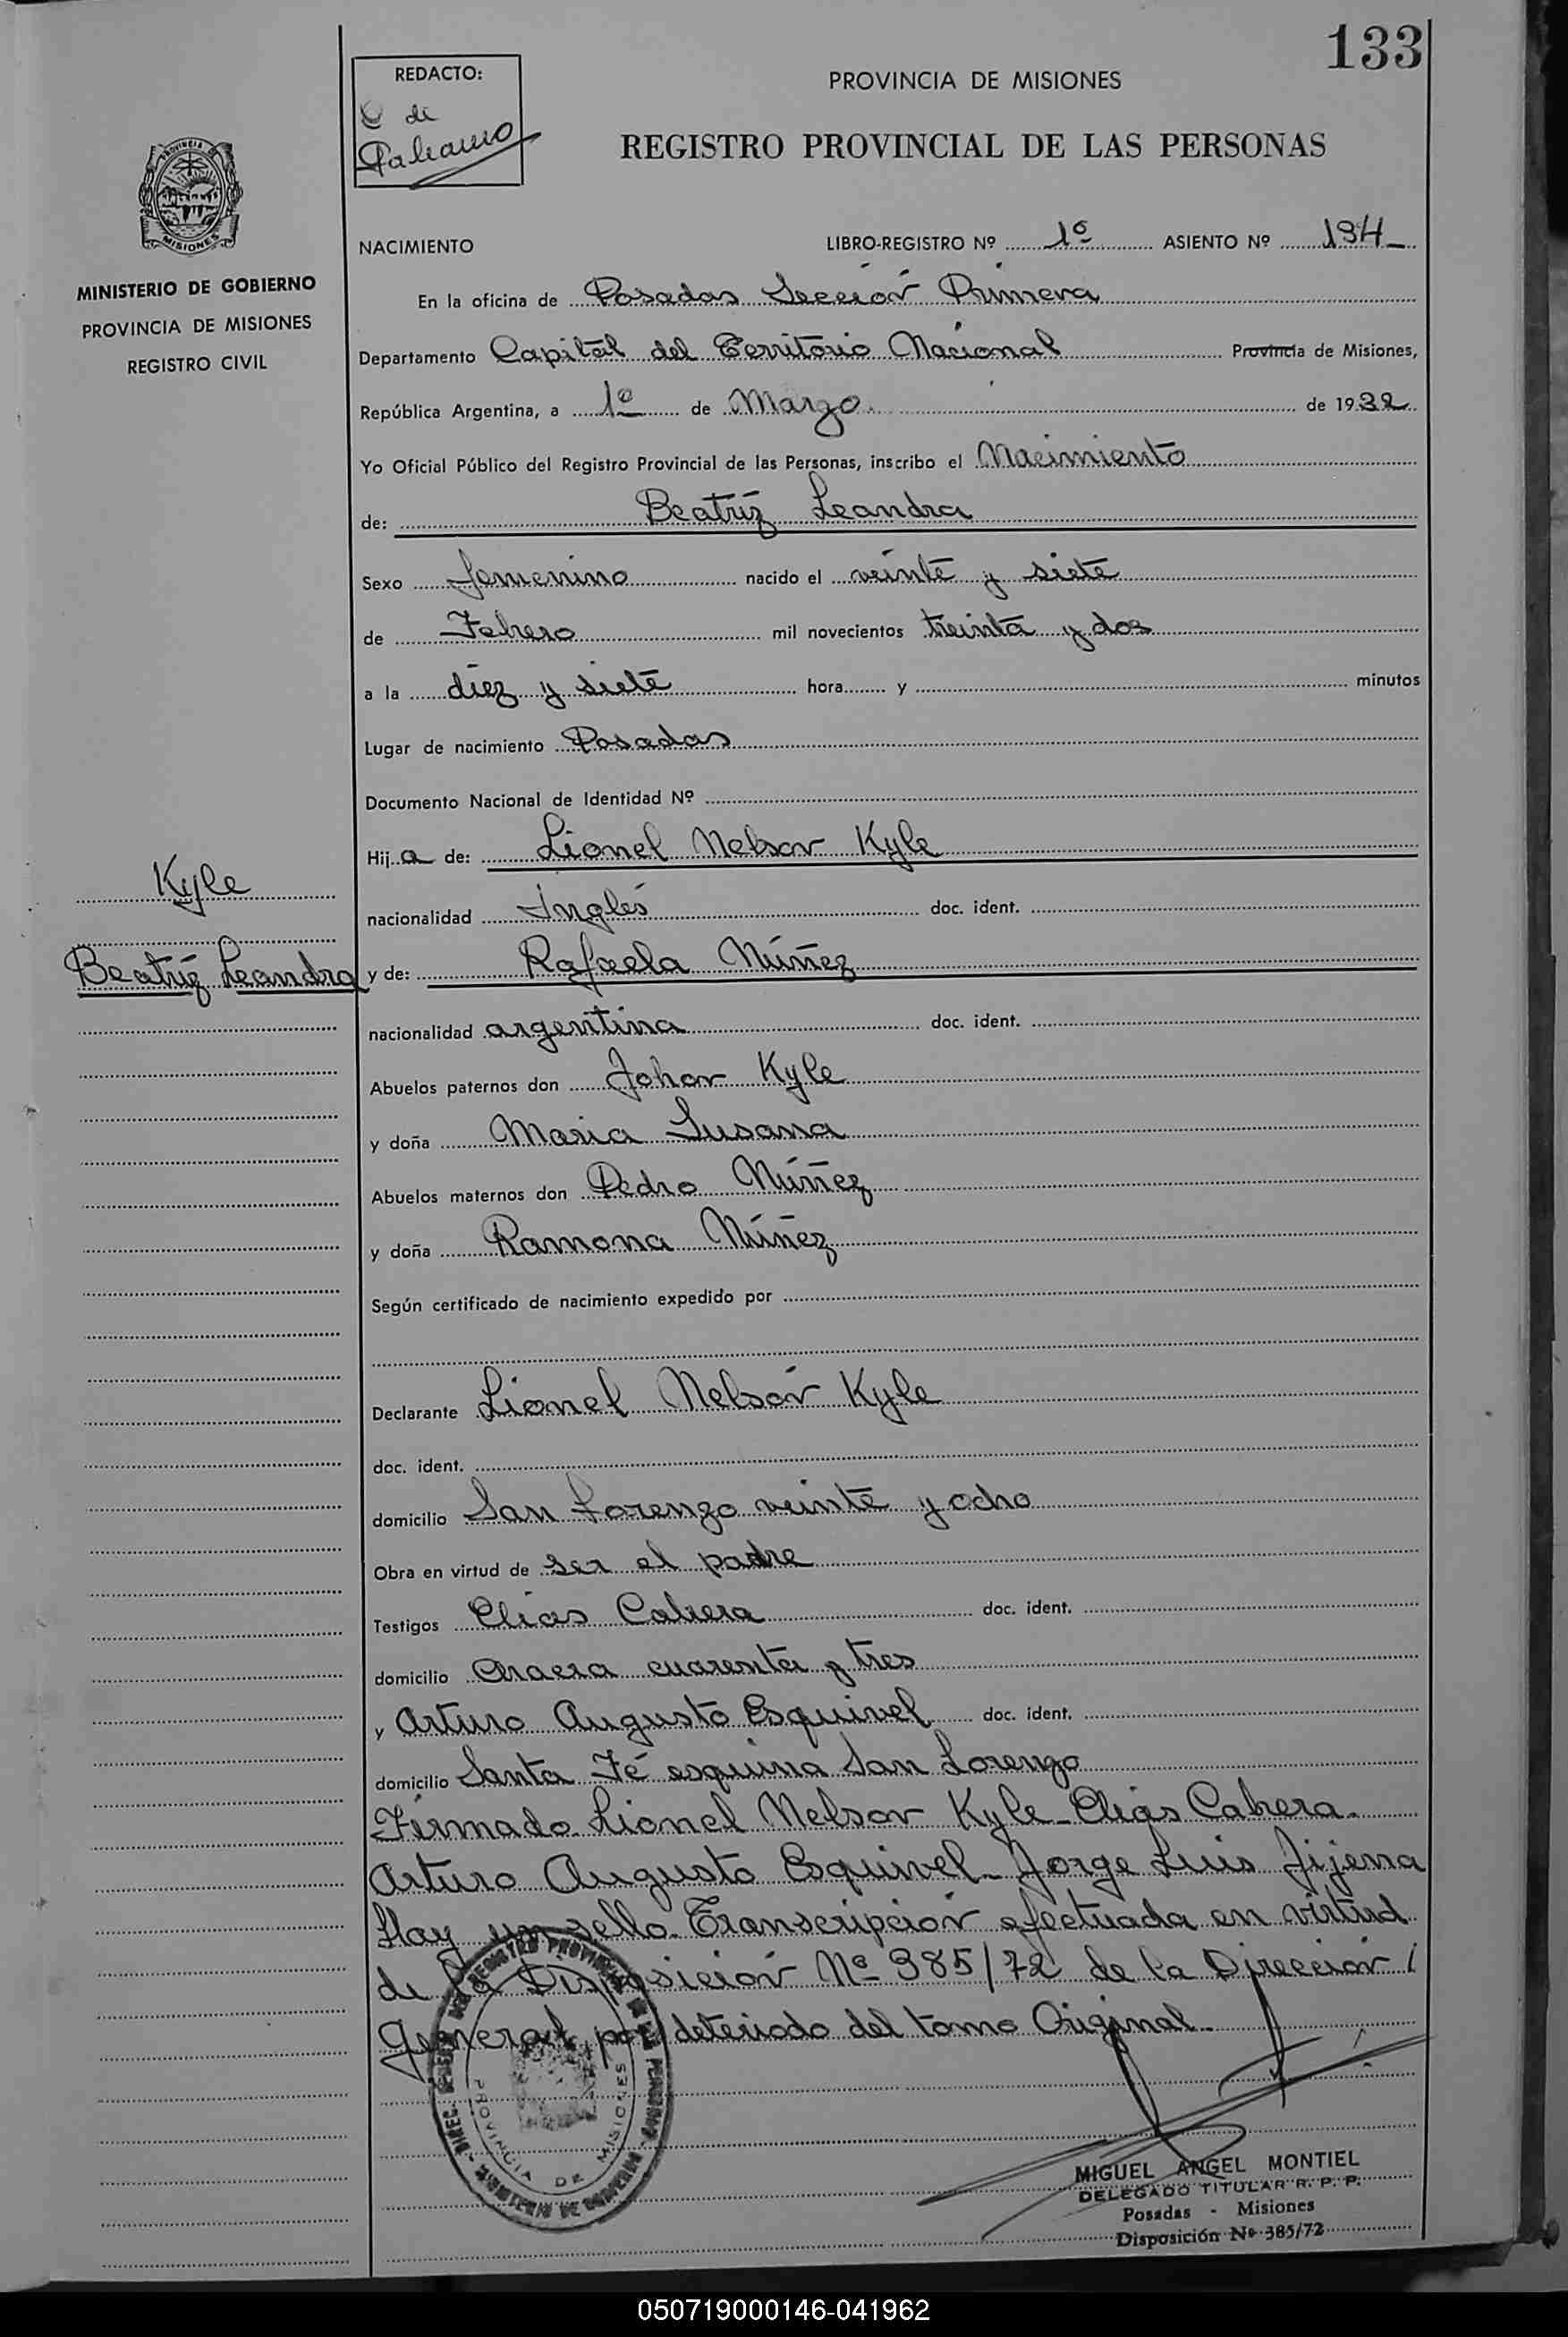 133
REDACTO:
de
PROVINCIA DE MISIONES
REGISTRO PROVINCIAL DE LAS PERSONAS
MISIONES
MINISTERIO DE GOBIERNO
PROVINCIA DE MISIONES
REGISTRO CIVIL
NACIMIENTO LIBRO-REGISTRO Nº 1º ASIENTO Nº 194
En la oficina de Posadas Sección Primera
Departamento Capital del Territorio Nacional Provincia de Misiones,
República Argentina, a 1º de Marzo de 1932
Yo Oficial Público del Registro Provincial de las Personas, inscribo el Nacimiento
de: Beatríz Leandra
Sexo femenino nacido el veinte y siete
de Febrero mil novecientos treinta y dos
a la diez y siete hora y minutos
Lugar de nacimiento Posadas
Documento Nacional de Identidad Nº
Hija de: Lionel Nelson Kyle
Kyle
nacionalidad Inglés doc. ident.
Beatríz Leandra
y de: Rafaela Núñez
nacionalidad argentina doc. ident.
Abuelos paternos don Johon Kyle
y doña Maria Susana
Abuelos maternos don Pedro Núñez
y doña Ramona Núñez
Según certificado de nacimiento expedido por
Declarante Lionel Nelsón Kyle
doc. ident.
domicilio San Lorenzo veinte y ocho
Obra en virtud de ser el padre
Testigos Elias Cabrera doc. ident.
domicilio cuarenta y tres
y Arturo Augusto Esquivel doc. ident.
domicilio Santa Fé esquina San Lorenzo
Firmado Lionel Nelson Kyle - Elias Cabrera.
Arturo Augusto Esquivel - Jorge Luis Jijena
Hay un sello. Transcripción efectuada en virtud
de la Disposición Nº 385/72 de la Dirección
General por deteriodo del tomo Original.
MIGUEL ANGEL MONTIEL
DELEGADO TITULAR R. P. P.
Posadas - Misiones
Disposición Nº 385/72
PROVINCIA DE MISIONES
050719000146-041962